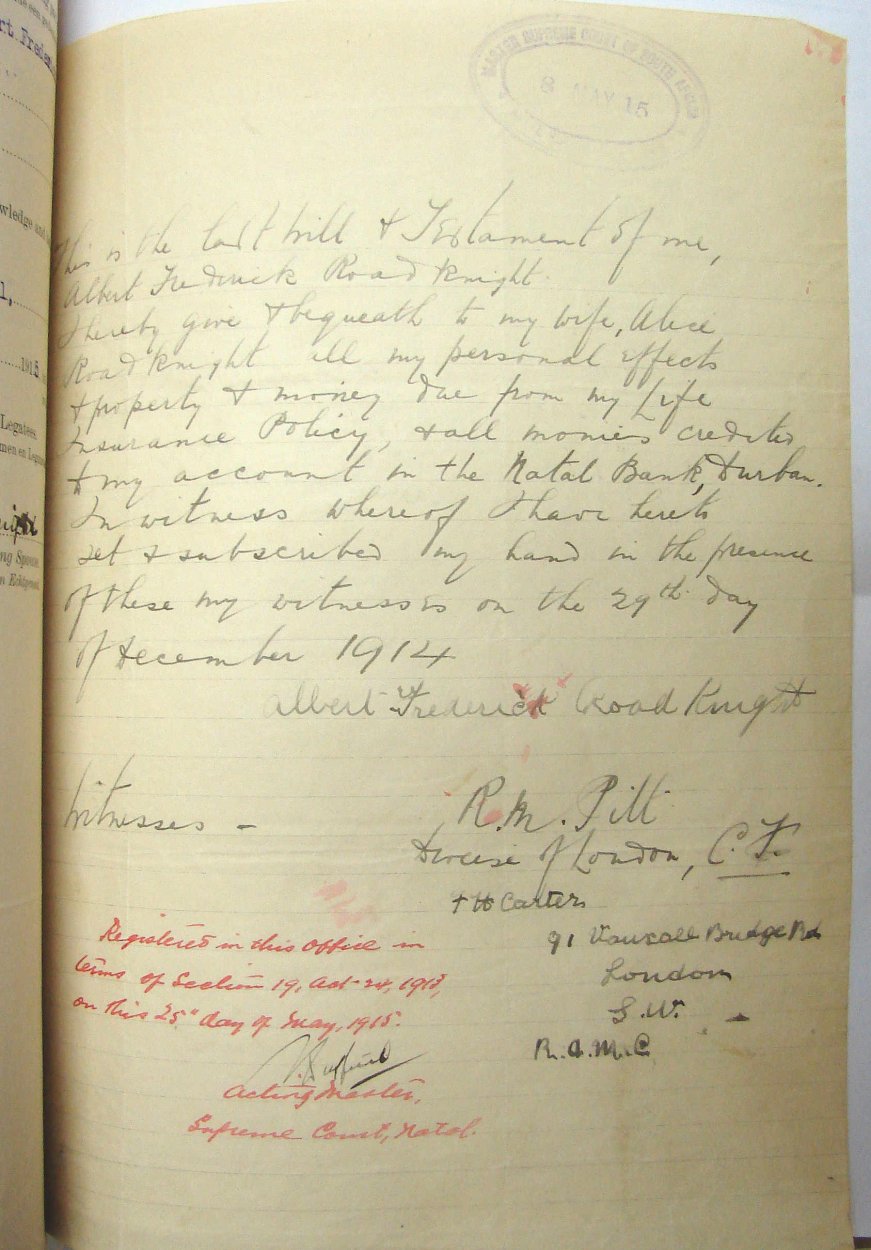 MASTER SUPREME COURT OF SOUTH AFRICA
8 MAY 15
This is the last Will & Testament of me,
Albert Frederick Roadknight.
I hereby give & bequeath to my wife, Alice
Roadknight all my personal effects
& property & money due from my Life
Insurance Policy, & all monies credited
to my account in the Natal Bank, Durban.
In witness whereof I have hereto
set & subscribed my hand in the presence
of these my witnesses on the 29th day
of December 1914
Albert Frederick Road Knight
Witnesses –
R. M. Pitt
Diocese of London, C. F.
Carters
91 Vauxall Bridge Rd
London
S. W. –
R. A. M. C
Registered in this Office in
terms of Section 19, Act 24, 1913,
on this 25" day of May, 1915.
Acting Master,
Supreme Court, Natal.
rt Freder
wledge and
1915
Legatees.
men en Lega
ng Spouse